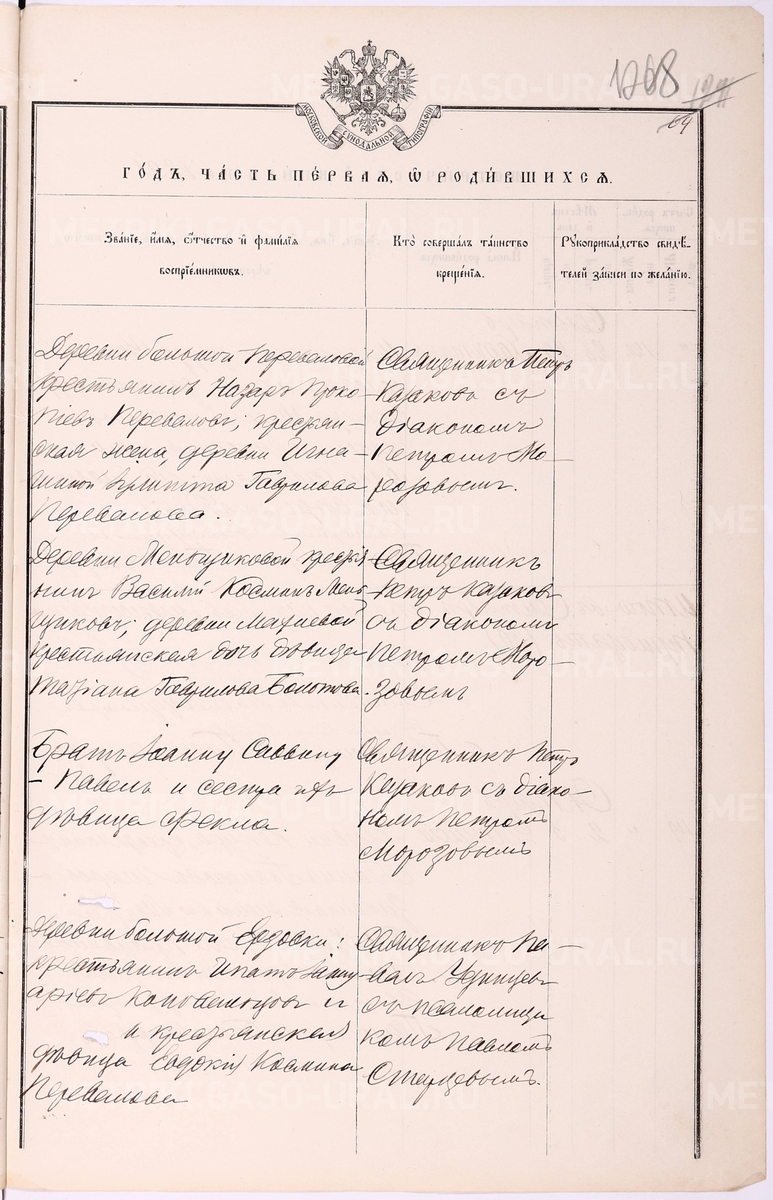 1268
69
МОСКОВСКОЙ СѴНОДАЛЬНОЙ ТИПОГРАФІИ
ГО́ДЪ, ЧА́СТЬ ПЕ́РВАЯ, Ѽ РОДИ́ВШИХСЯ.
Зва́ніе, и́мя, о́тчество и҆ фами́лія
воспріе́мниковъ.
Кто̀ соверша́лъ та́инство
креще́нія.
Рꙋкоприкла́дство свидѣ́-
телей за́писи по жела́нію.
Деревни большой Переваловой
крестьянинъ Назаръ Проко-
піевъ Переваловъ; крестьян-
ская жена, деревни Игна-
шиной Гаврилова
Перевалова.
Священникъ Петръ
Казаковъ съ
діакономъ
Петромъ Мо-
розовымъ.
Деревни Меньщиковой крестья-
нинъ Василій Косминъ Мень-
щиковъ; деревни Махневой
крестьянская дочь дѣвица
Татіана Гаврилова Болотова.
Священникъ
Петръ Казаковъ
съ діакономъ
Петромъ Моро-
зовымъ
Братъ Іоанну Саввину
- Павелъ и сестра ихъ
дѣвица Фекла.
Священникъ Петръ
Казаковъ съ діако-
номъ Петромъ
Морозовымъ
Деревни большой Ерзовки:
крестьянинъ Ипатъ Іанну-
аріевъ Коноваловъ и
и крестьянская
дѣвица Евдокія Космина
Перевалова
Священникъ Па-
велъ Удинцевъ
съ псаломщи
комъ Павломъ
Старцевымъ.